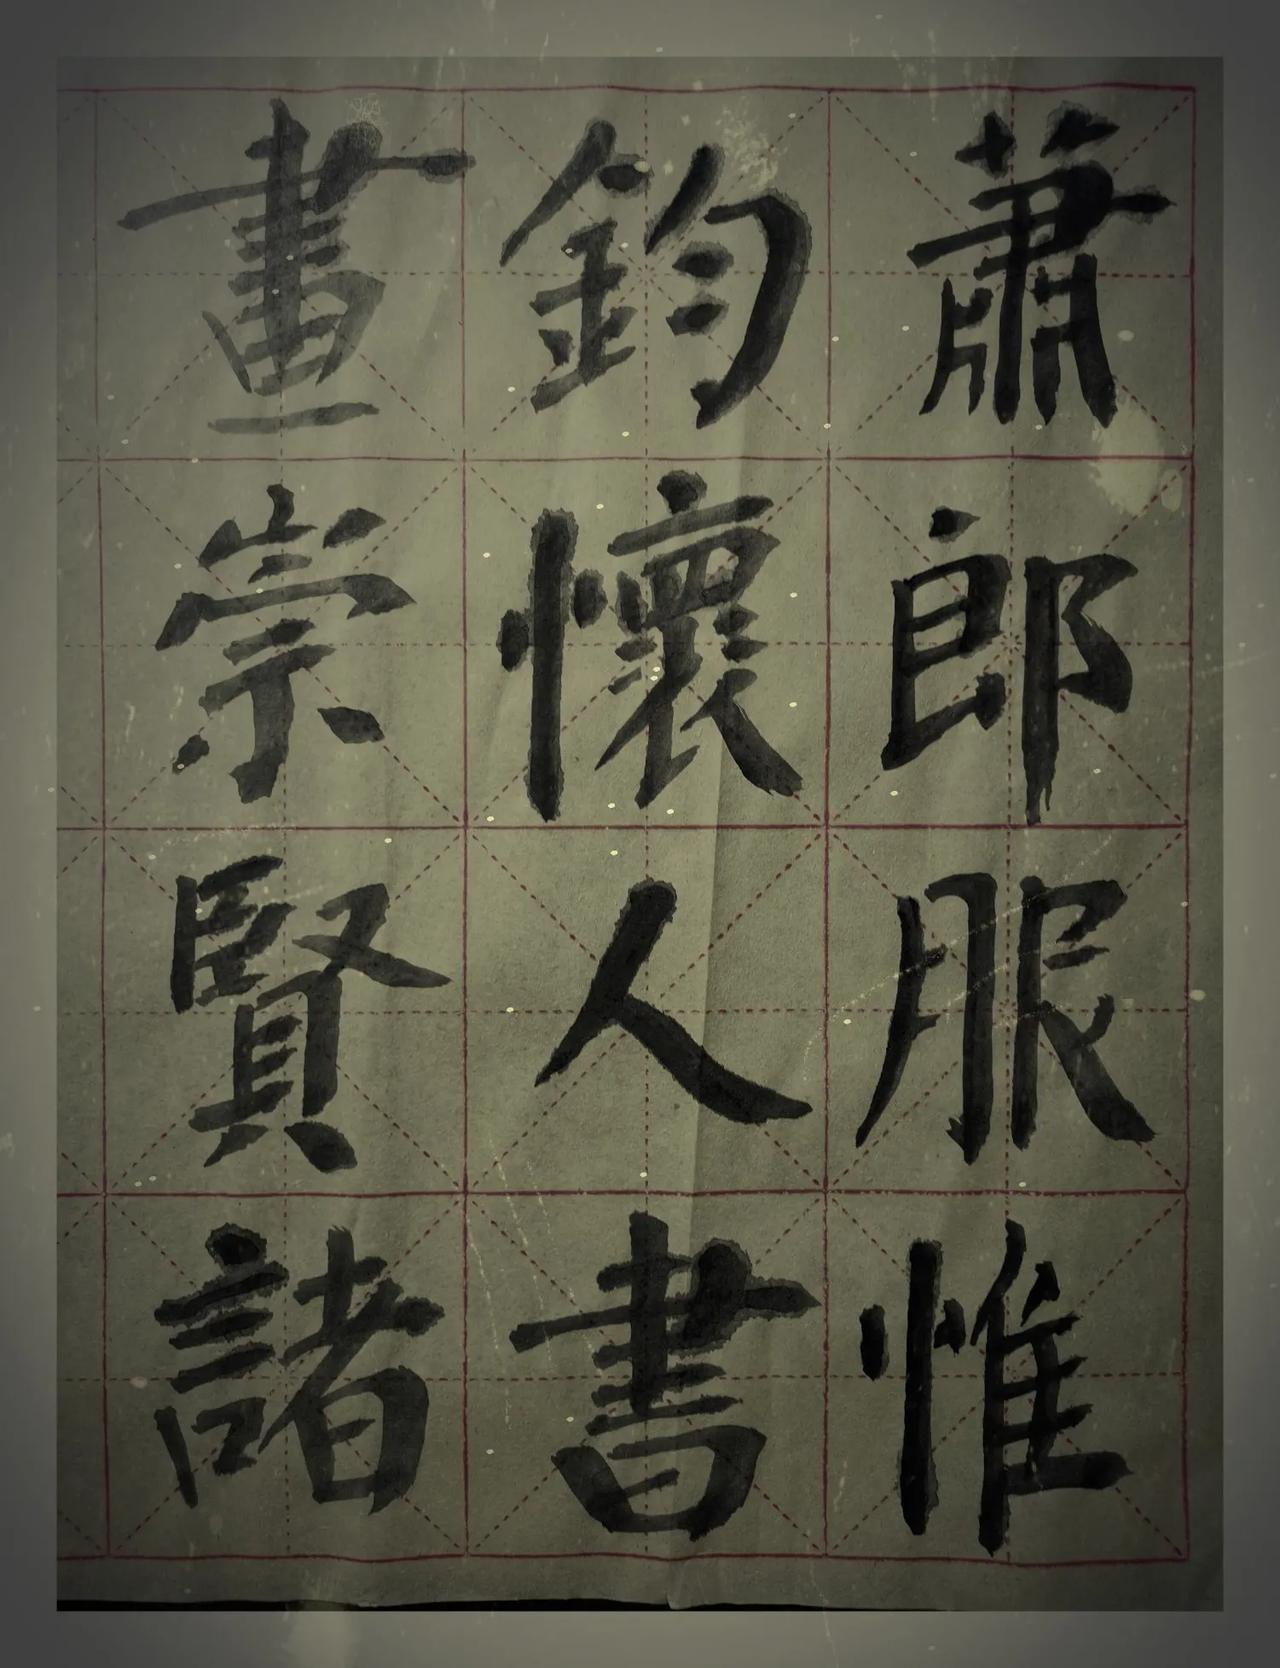 蕭郎服惟
鈞懷人書
畫崇賢諸